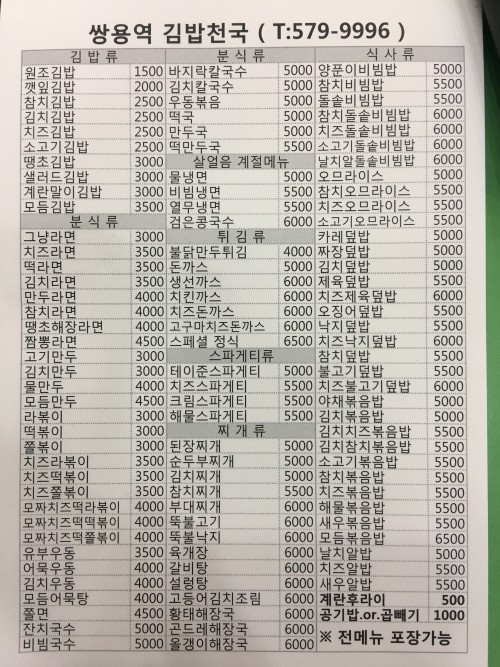 쌍용역 김밥천국 ( T:579-9996 )
김밥류
원조김밥 1500
깻잎김밥 2000
참치김밥 2500
김치김밥 2500
치즈김밥 2500
소고기김밥 2500
땡초김밥 3000
샐러드김밥 3000
계란말이김밥 3000
모듬김밥 3500
분식류
그냥라면 3000
치즈라면 3500
떡라면 3500
김치라면 3500
만두라면 4000
참치라면 4000
땡초해장라면 4000
짬뽕라면 4500
고기만두 3000
김치만두 3000
물만두 4000
모듬만두 4500
라볶이 3000
떡볶이 3000
쫄볶이 3000
치즈라볶이 3500
치즈떡볶이 3500
치즈쫄볶이 3500
모짜치즈떡라볶이 4000
모짜치즈떡떡볶이 4000
모짜치즈떡쫄볶이 4000
유부우동 3500
어묵우동 4000
김치우동 4000
모듬어묵탕 4000
쫄면 4500
잔치국수 5000
비빔국수 5000
분식류
바지락칼국수 5000
김치칼국수 5000
우동볶음 5000
떡국 5000
만두국 5000
떡만두국 5500
살얼음 계절메뉴
물냉면 5000
비빔냉면 5500
열무냉면 5500
검은콩국수 6000
튀김류
불닭만두튀김 4000
돈까스 5000
생선까스 6000
치킨까스 6000
치즈돈까스 6000
고구마치즈돈까스 6000
스페셜 정식 6500
스파게티류
테이준스파게티 5000
치즈스파게티 5500
크림스파게티 5500
해물스파게티 5500
찌개류
된장찌개 5000
순두부찌개 5000
김치찌개 5000
참치찌개 5500
부대찌개 6000
뚝불고기 6000
뚝불낙지 6000
육개장 6000
갈비탕 6000
설렁탕 6000
고등어김치조림 6000
황태해장국 6000
곤드레해장국 6000
올갱이해장국 6000
식사류
양푼이비빔밥 5000
참치비빔밥 5500
돌솥비빔밥 5500
참치돌솥비빔밥 6000
치즈돌솥비빔밥 6000
소고기돌솥비빔밥 6000
날치알돌솥비빔밥 6000
오므라이스 5000
참치오므라이스 5500
치즈오므라이스 5500
소고기오므라이스 5500
카레덮밥 5000
짜장덮밥 5000
김치덮밥 5000
제육덮밥 5500
치즈제육덮밥 6000
오징어덮밥 5500
낙지덮밥 5500
치즈낙지덮밥 6000
참치덮밥 5500
불고기덮밥 5500
치즈불고기덮밥 6000
야채볶음밥 5000
김치볶음밥 5000
김치치즈볶음밥 5500
김치참치볶음밥 5500
소고기볶음밥 5500
참치볶음밥 5500
치즈볶음밥 5500
해물볶음밥 5500
새우볶음밥 5500
모듬볶음밥 6500
날치알밥 5000
치즈알밥 5500
새우알밥 5500
계란후라이 500
공기밥.or.곱빼기 1000
※ 전메뉴 포장가능